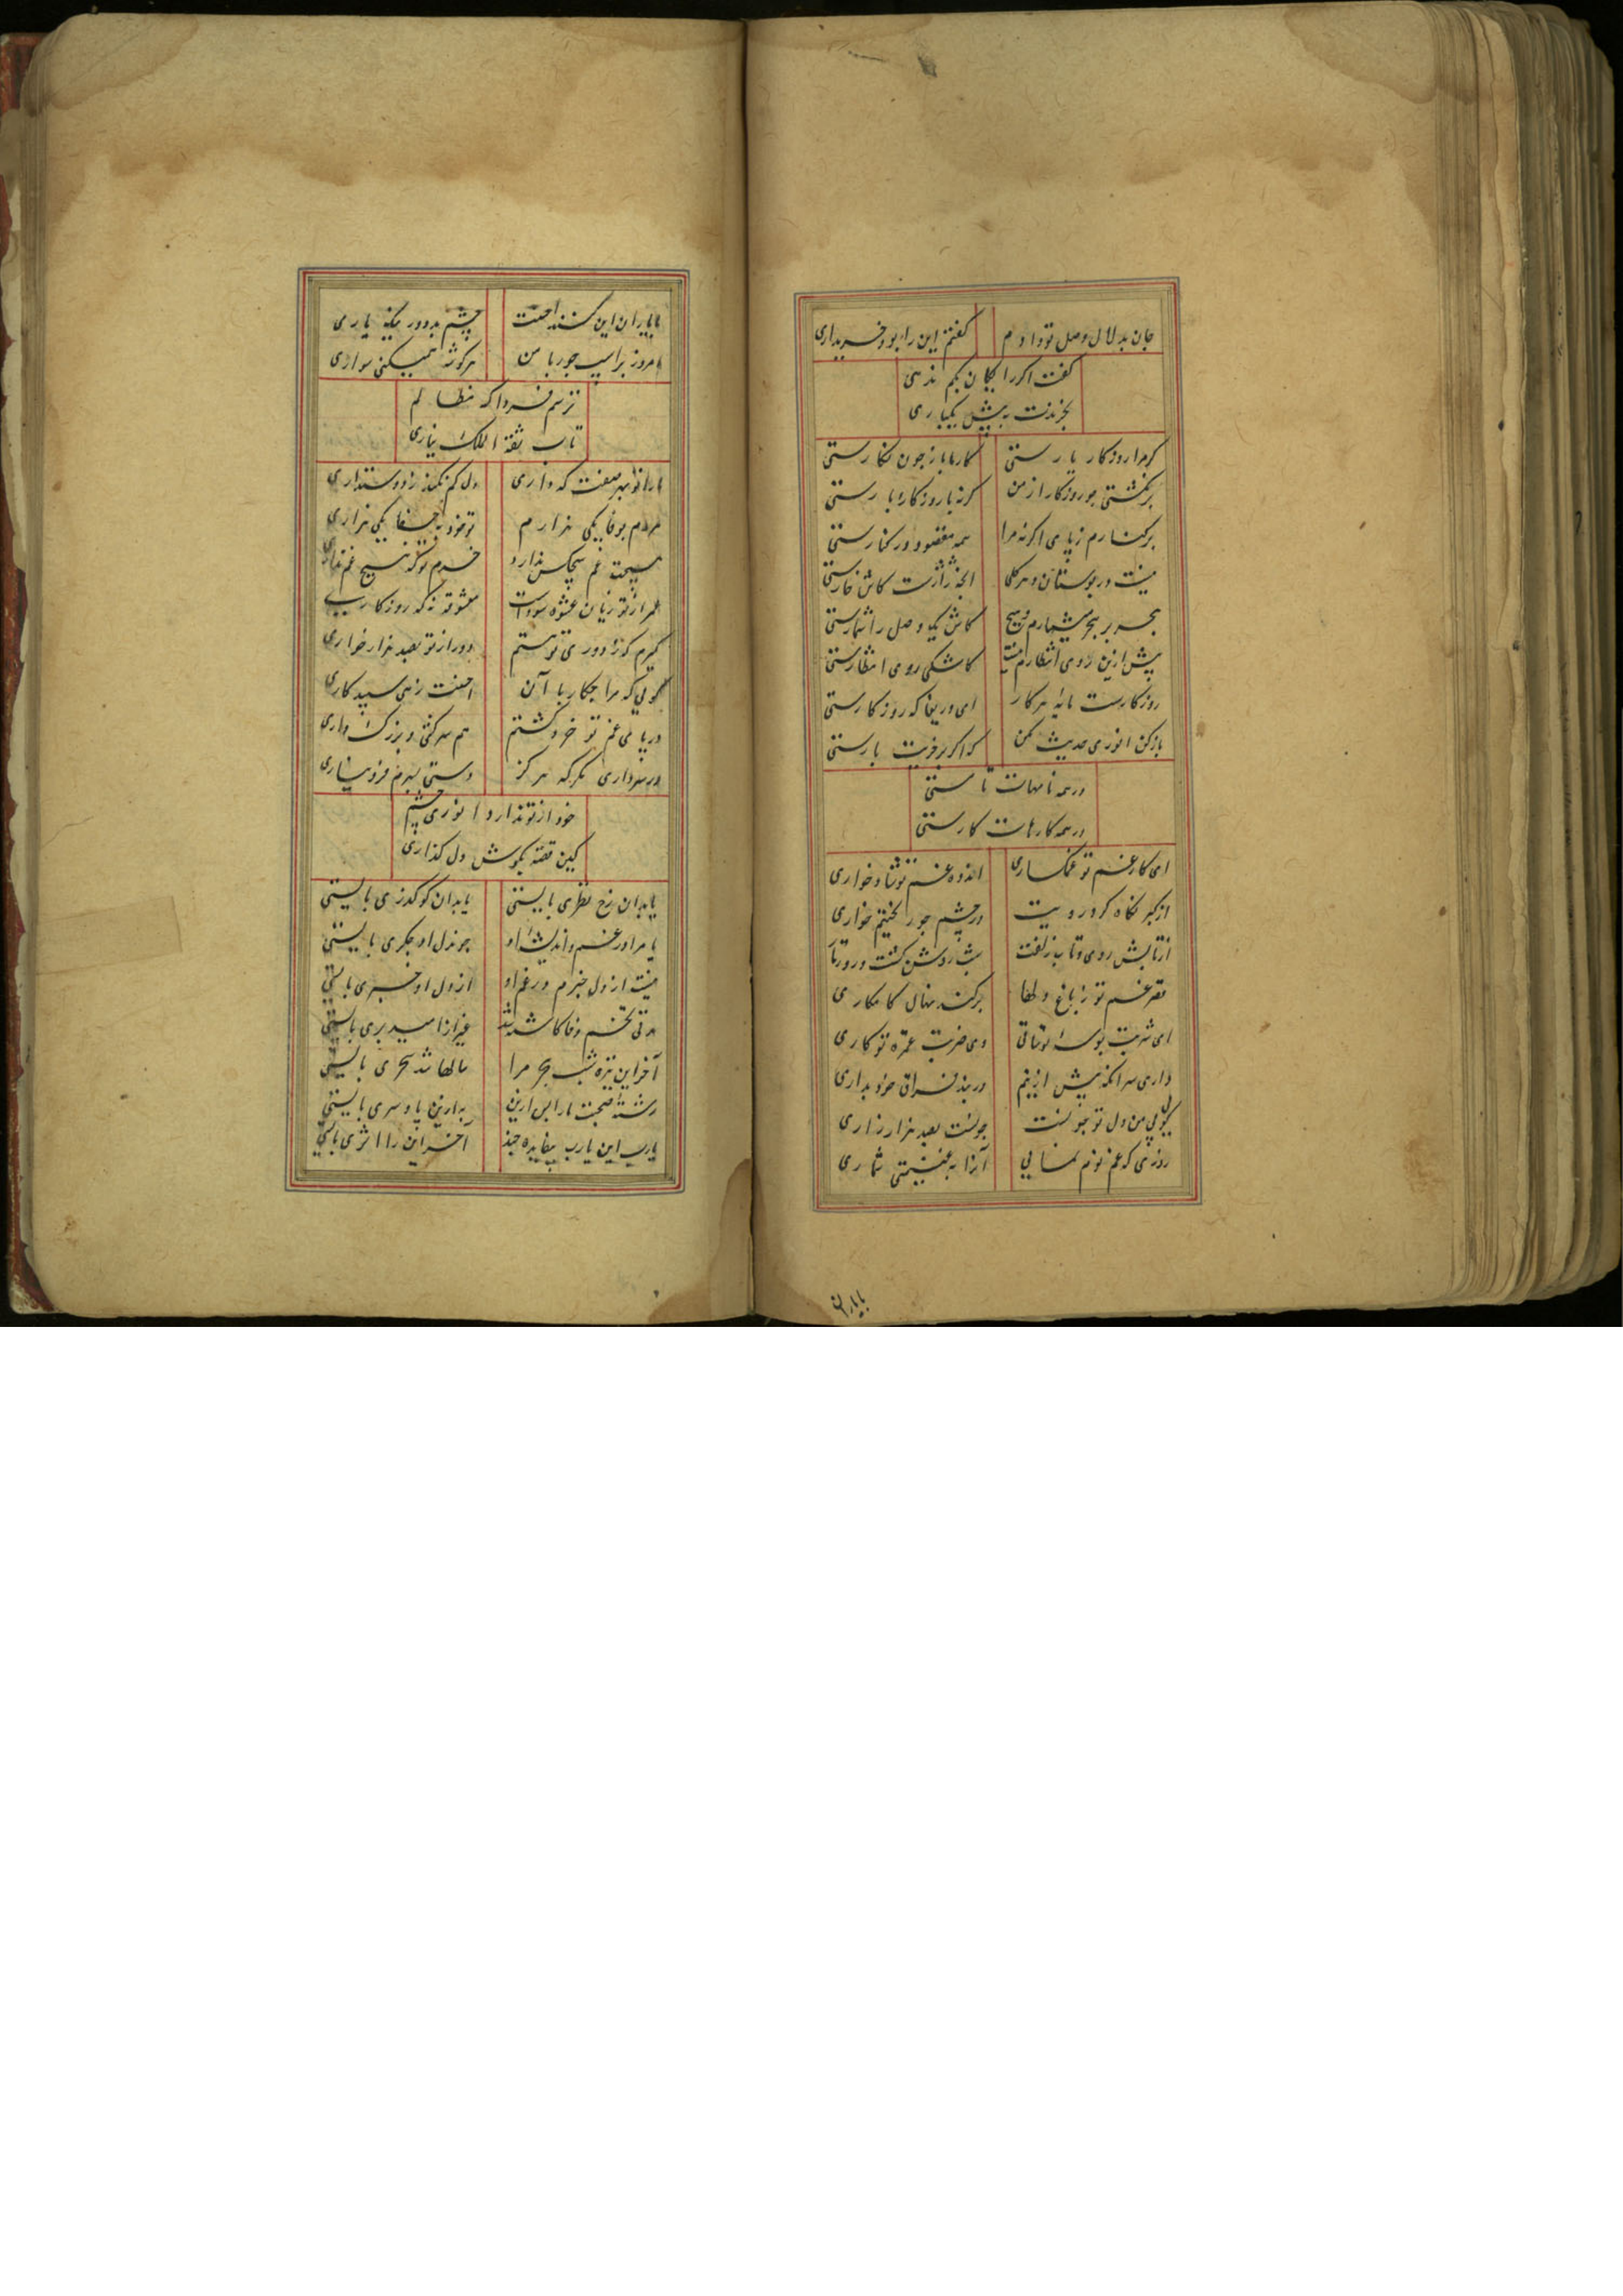 جان بدلال وصل تو دادم
گفتم این را بود خریداری
گفت اگر رایگان بکم ندهی
بخرندت به پیش یکباری
گر مرا روزگار یارستی
کارها با زچون نگارستی
برنگشتی چو روزگار از من
گرنه با روزگار یارستی
برکنارم ز پای اگرنه مرا
همه مقصود در کنارستی
نیست در بوستان و هر گلی
کاش خارستی
هجر بر هجر میشمارم هیچ
کاش یک وصل را شمارستی
پیش ازین روی انتظارم نیست
کاشکی روی انتظارستی
روزگارست مایه هر کار
ای دریغا که روزگارستی
باز کن انوری حدیث مکن
که اگر بر فریت بارستی
در همه نامهات نامستی
در همه کارهات کارستی
ای کار غم تو غمگساری
اندوه غم تو شادخواری
از کبر نگاه کرد رویت
در چشم جور نختیم خواری
از تابش روی و تاب زلفت
شب روشن گشت و روز تاری
قهر غم تو ز باغ دلها
برکند نهال کامکاری
ای شربت بوسه تو شافی
وی ضربت غمزه تو کاری
داری سر آنکه بیش ازینم
در بند فراق خود بداری
گویی من دل تو جویست
جوئست بصد هزار زاری
روزی که غم نوم نمایی
آنرا به غنیمتی شماری
بایاران
با یاران این کنند احسنت
چشم بد دور نیک یاری
امروز بر اسب جور با من
هر گوشه همی کنی سواری
ترسم فردا که مظالم
تاب ثقة الملک نیاری
یارا تو بهر صفت که داری
دل کم نکند ز دوستداری
مردم بوفا یکی هزارم
تو خود بجفا یکی هزاری
هیچت غم هیچکس ندارد
خرم تو که هیچ غم نداری
عمر از تو زیان عشوه سودست
معشوقه نه که روزگاری
گیرم که ز دوری تو هستم
دور از تو بصد هزار خواری
گویی که مرا چکار با آن
احسنت زهی سپیدکاری
در پای غم تو خرد گشتم
هم سرکشی و بزرگواری
در سر داری مگر که هرگز
دستی بسرم فرو نیاری
خود از تو ندارد انوری چشم
کین قصه بگوش دل گذاری
یا بدان رخ نظری بایستی
یا بدان کو گذری بایستی
یا مرا در غم و اندیشه او
چون دل او جگری بایستی
نیست از دل خبرم در غم او
از دل او خبری بایستی
مدتی تخم وفا کاشته شد
غیر ازامید بری بایستی
آخر این تیره شب هجر مرا
سالها شد سحری بایستی
رشته صحبت ما را پس ازین
به ازین پا و سری بایستی
یا رب این یا رب بیفایده چند
آخر این را اثری بایستی